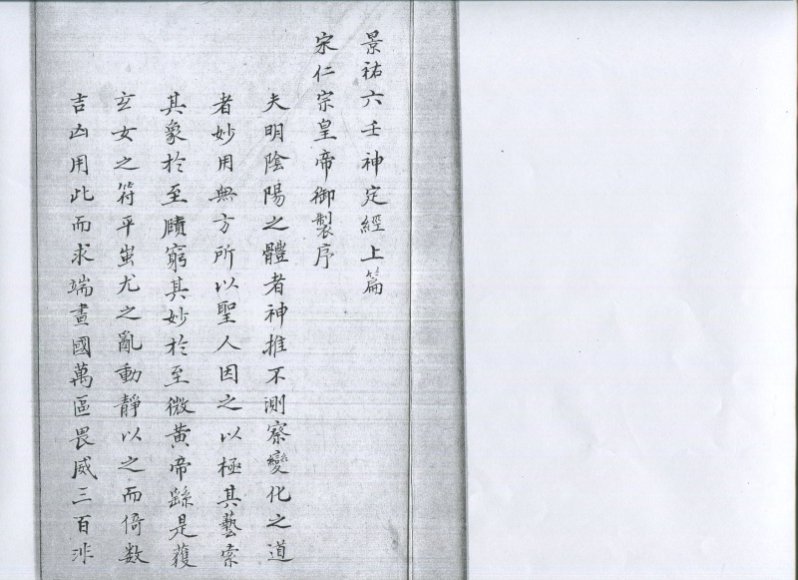 景祐六壬神定經上篇
宋仁宗皇帝御製序
夫明陰陽之體者神推不測察變化之道
者妙用無方所以聖人因之以極其藝索
其象於至賾窮其妙於至微黃帝繇是獲
玄女之符平蚩尤之亂動靜以之而倚数
吉凶用此而求端畫國萬區畏威三百